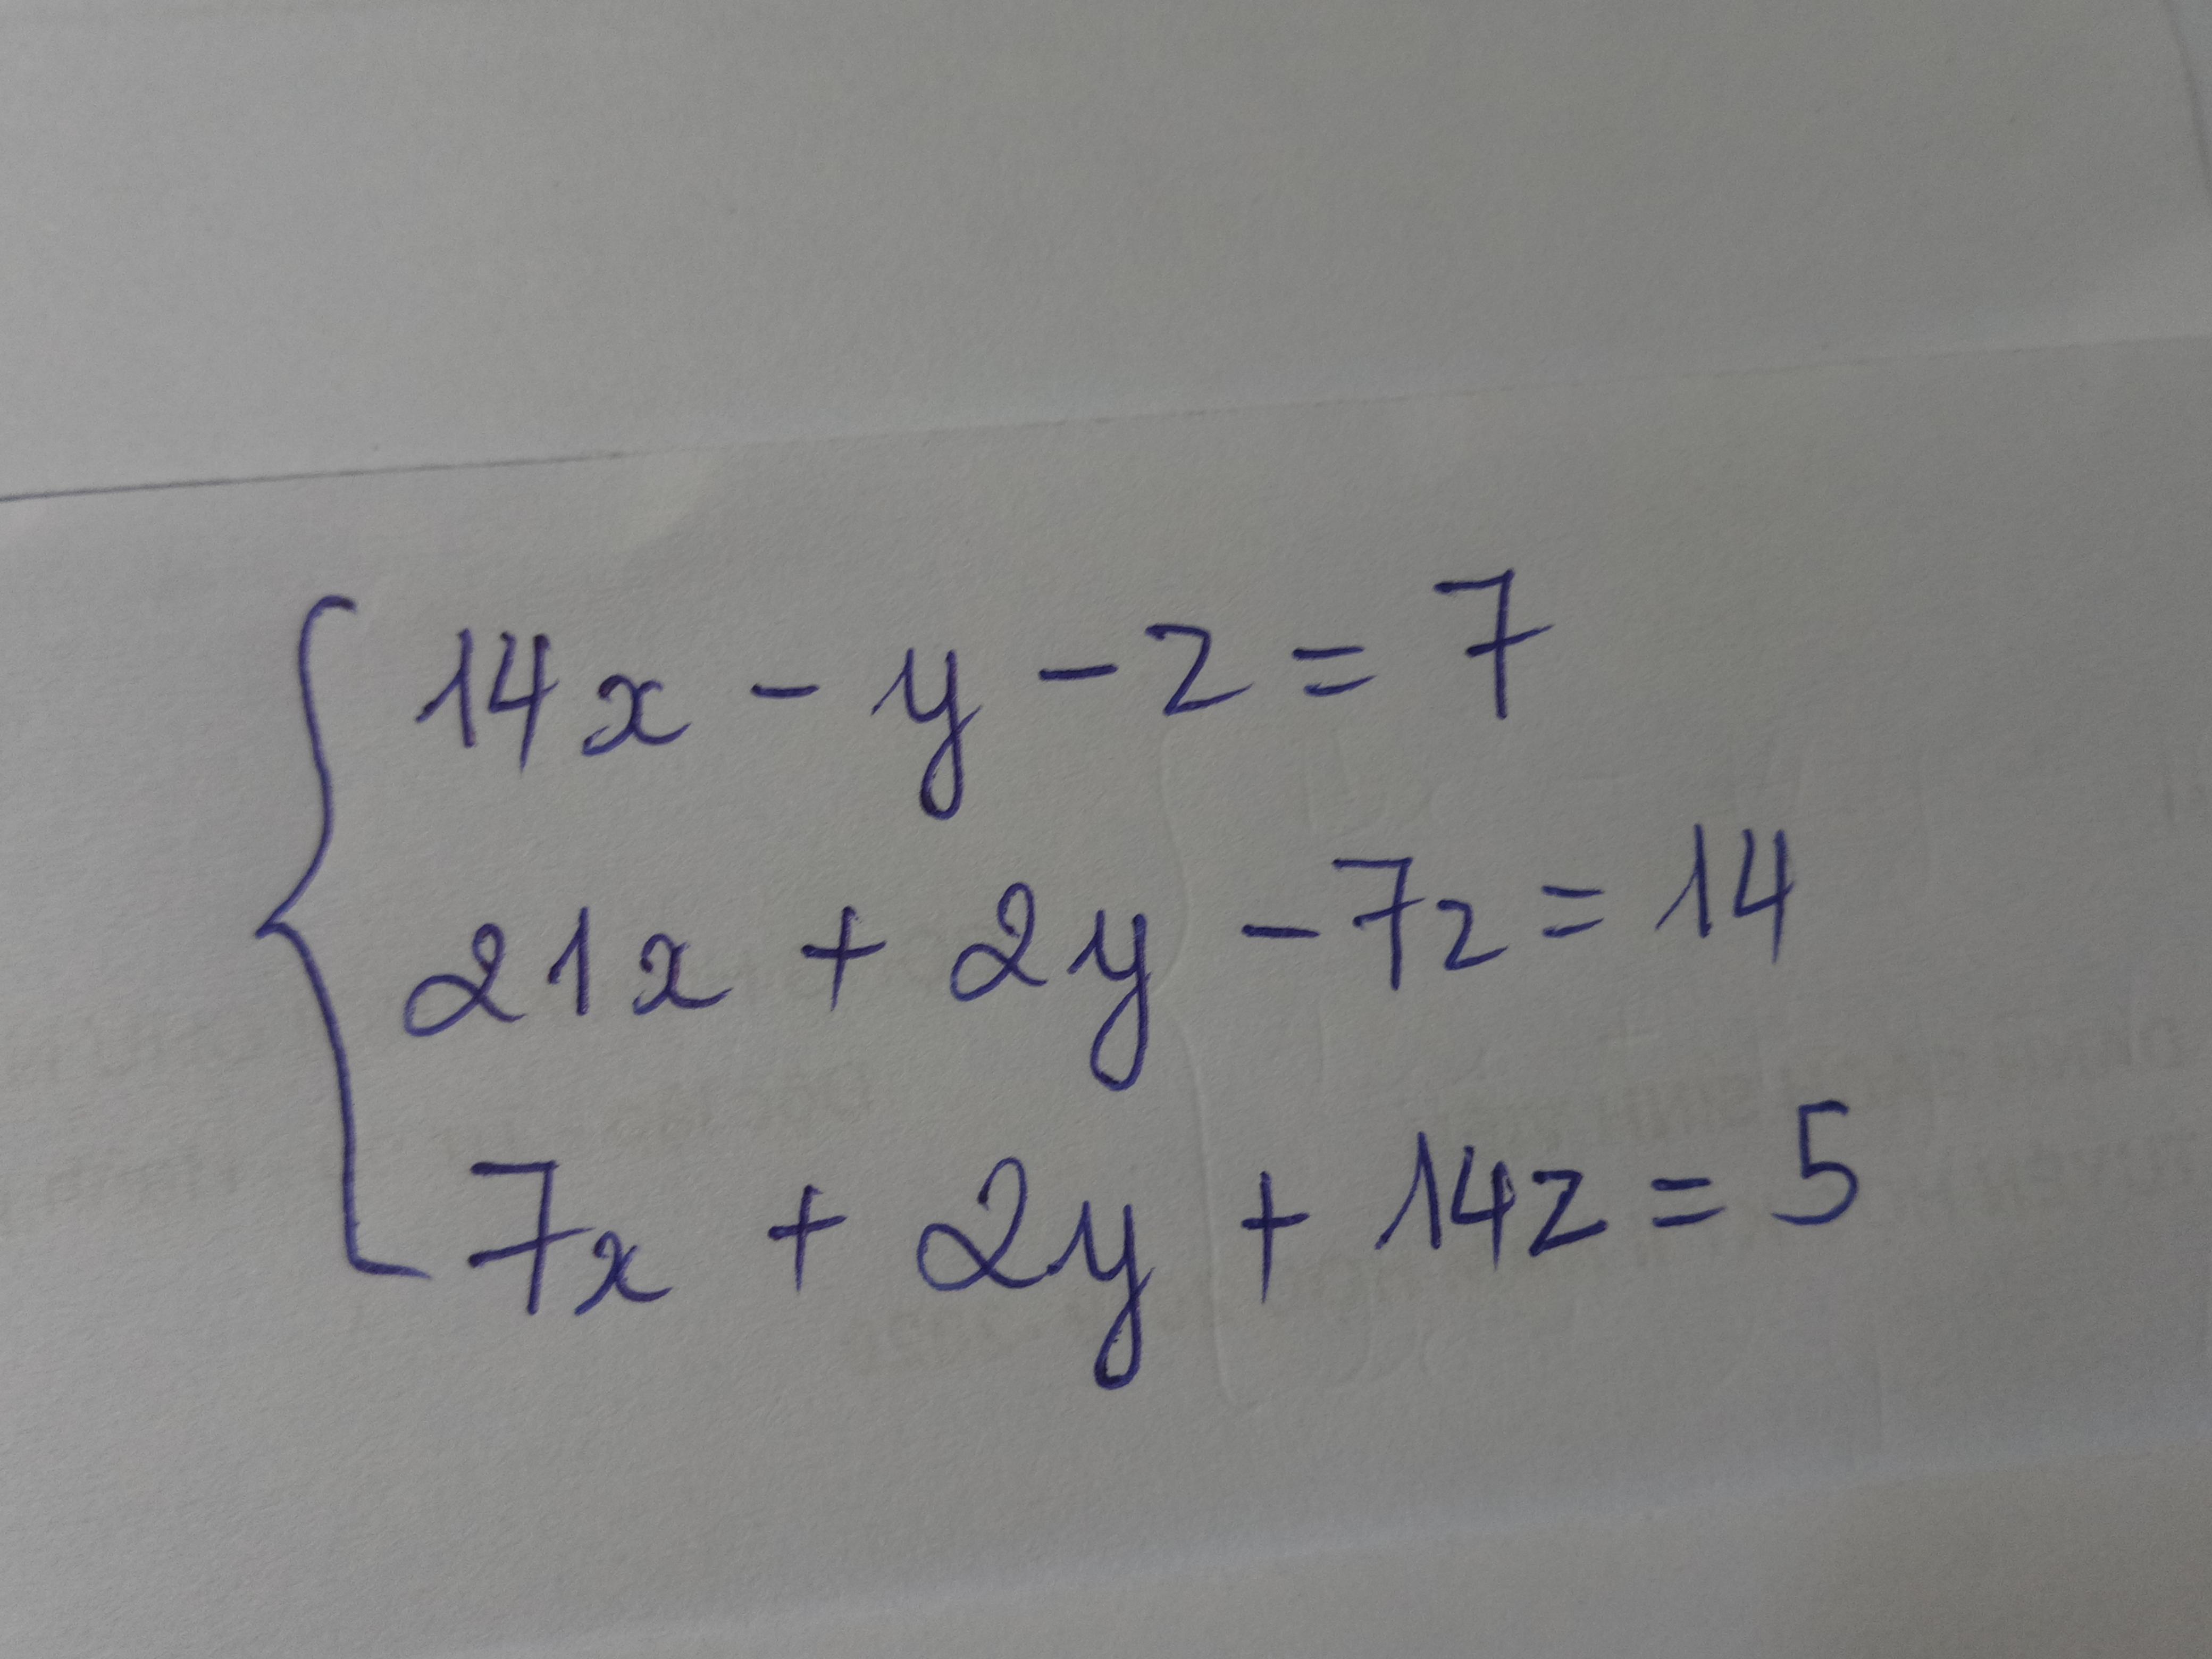 14x - y - z = 7
21x + 2y - 7z = 14
7x + 2y + 14z = 5